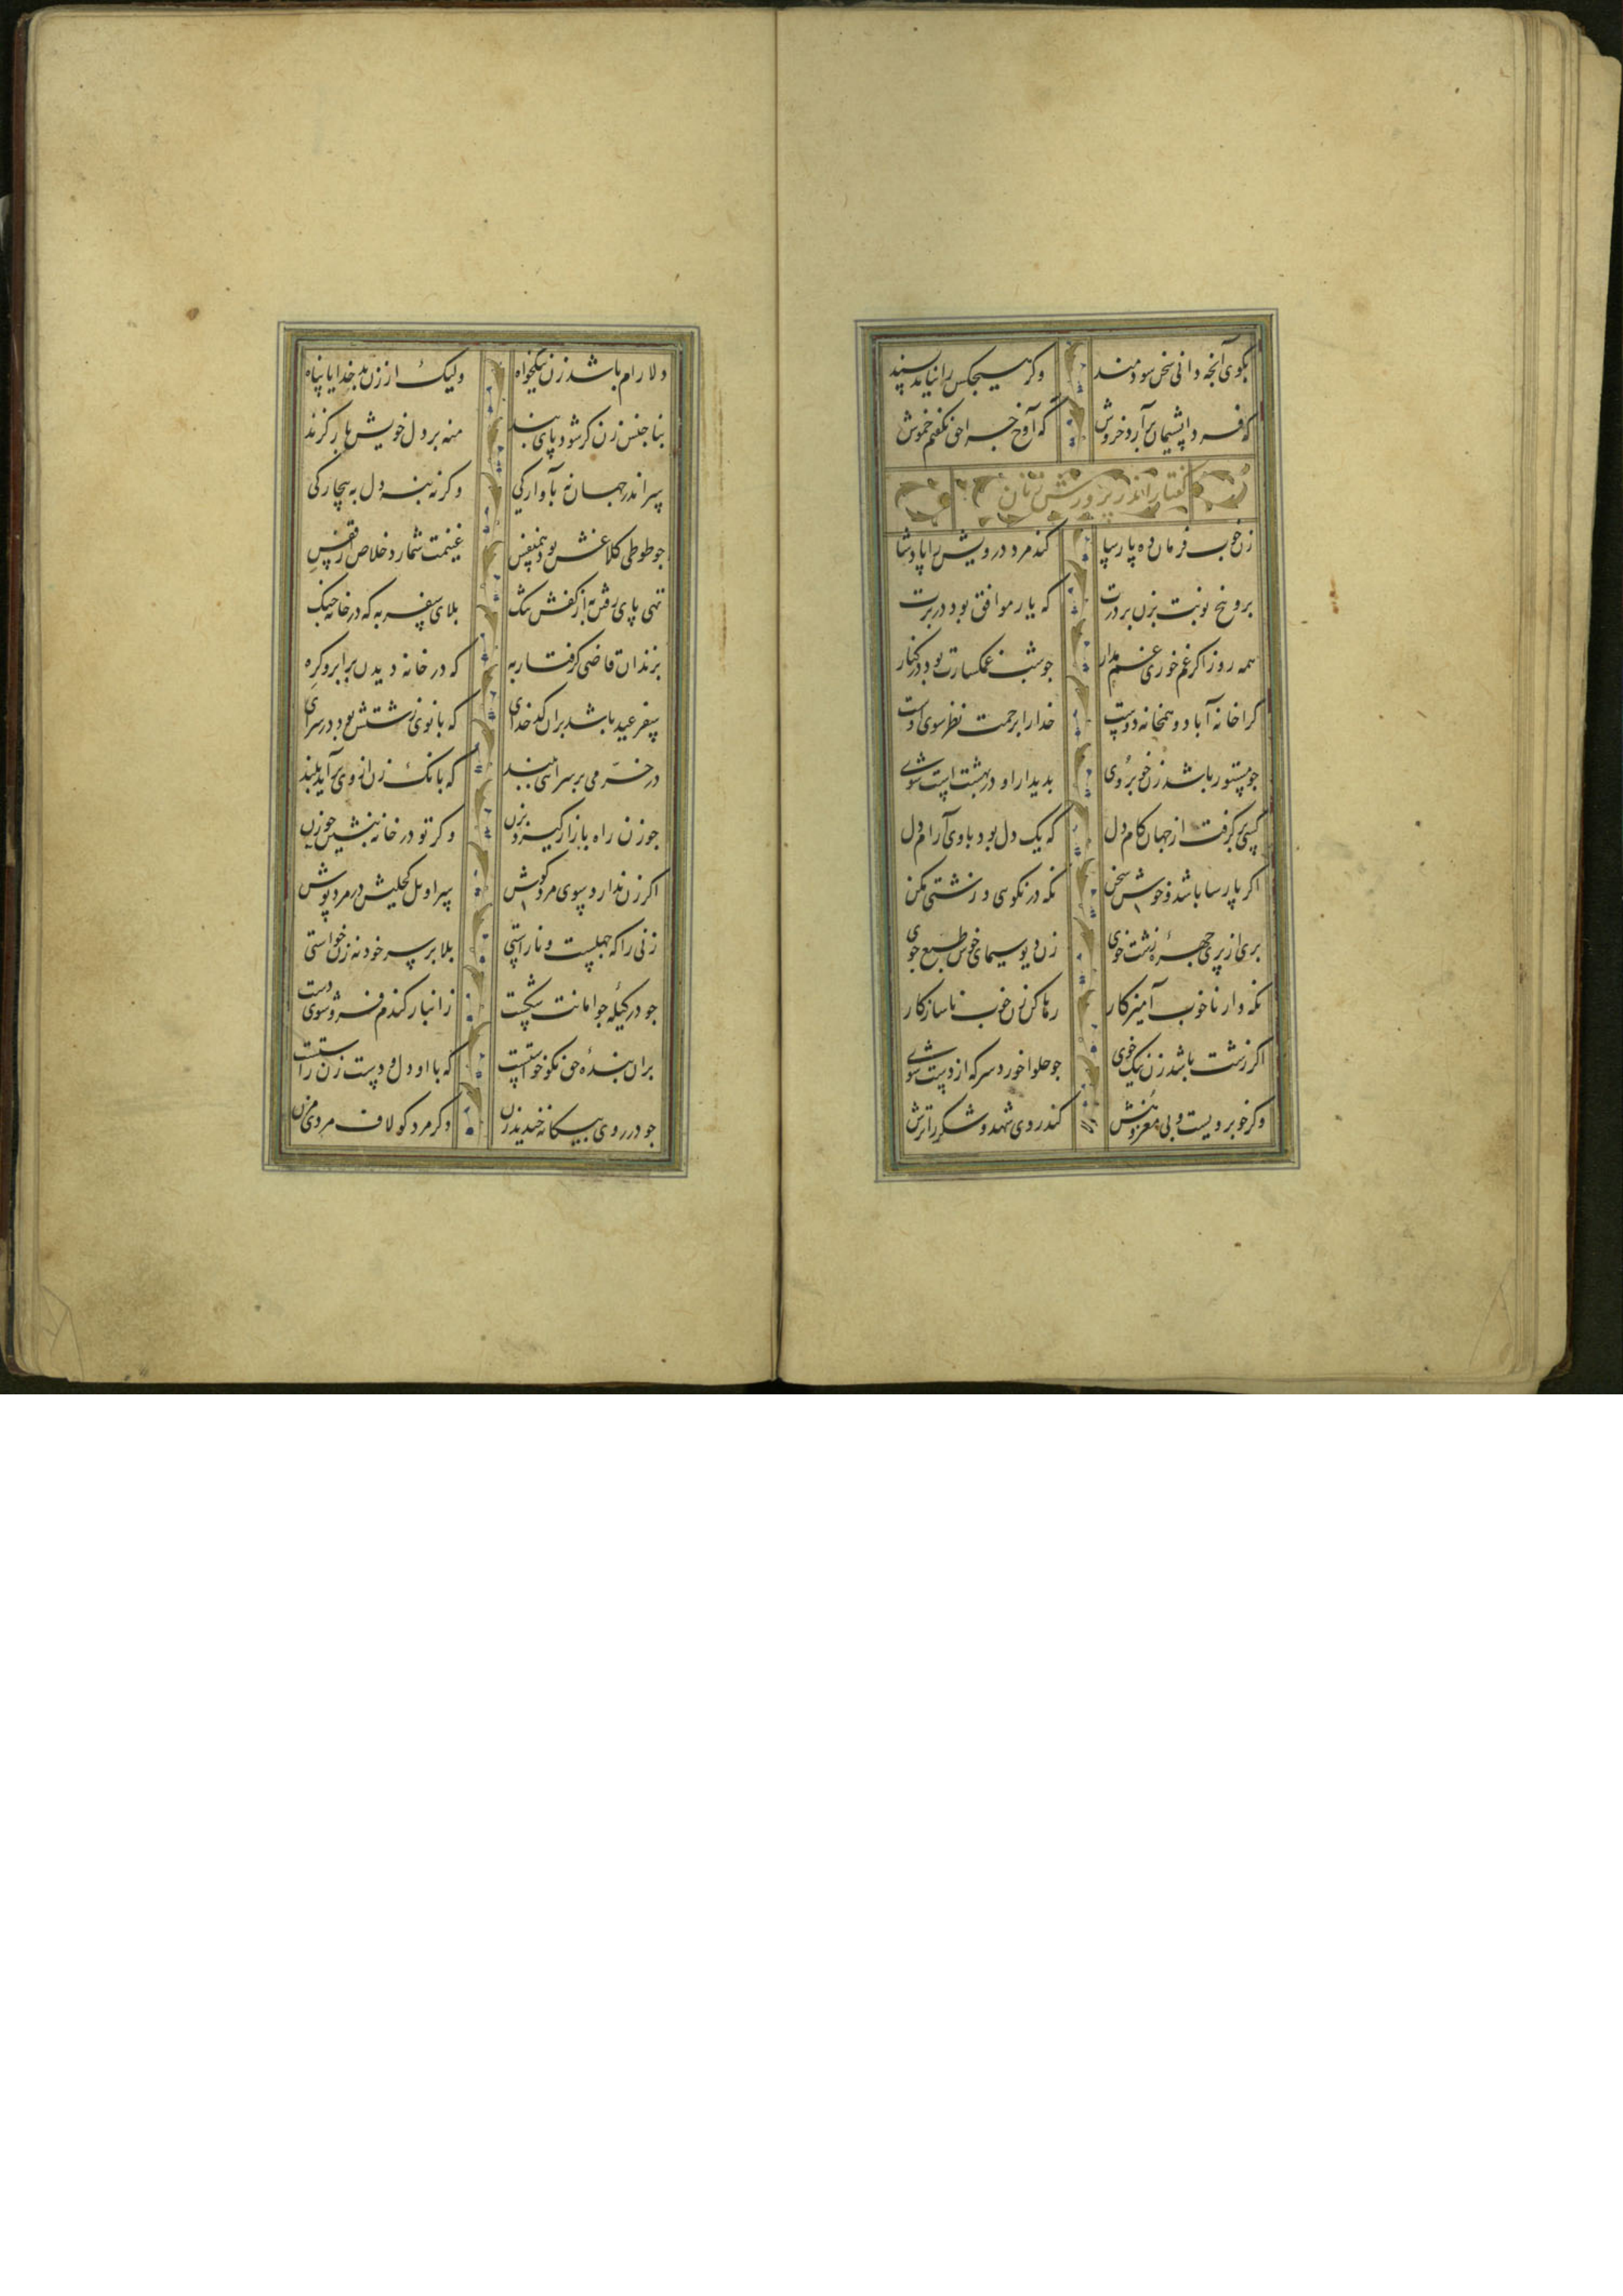 بکوی آنجه دانی سخن سودمند وکر هیجکس را نیاید پسند
که فردا پشیمان برآرد خروش که آوخ جرا حق نکفتم خموش
کفتار اندر پرورش زنان
زن خوب فرمان ده پارسا کند مرد درویش را پادشا
برو پنج نوبت بزن بر درت که یار موافق بود در برت
همه روز اکر غم خوری غم مدار جو شب غمکسارت بود در کنار
کرا خانه آباد و همخانه دوست خدا را برحمت نظر سوی اوست
جو مستور باشد زن خوبروی بدیدار او در بهشت است شوی
کسی برکرفت از جهان کام دل که یک دل بود با وی آرام دل
اکر پارسا باشد و خوش سخن نکه در نکویی و زشتی مکن
بری از پری جهرهٔ زشت خوی زن دیو سیمای خوش طبع جوی
نکه دار ناخوب آمیزکار رها کن زن خوب ناسازکار
اکر زشت باشد زن نیک خوی جو حلوا خورد سرکه از دست شوی
وکر خوبرویست و بی مغز و هش کند روی شهد و شکر را ترش
دلارام باشد زن نیکخواه ولیک از زن بد خدایا پناه
بناجنس زن کر شود پای بند منه بر دل خویش بار کزند
سر اندر جهان نه بآوارکی وکرنه بنه دل به بیچارکی
جو طوطی کلاغش بود همنفس غنیمت شمارد خلاص از قفس
تهی پای رفتن به از کفش تنک بلای سفر به که در خانه جنک
بزندان قاضی کرفتار به که در خانه دیدن بر ابرو کره
سفر عید باشد بران کدخدای که بانوی زشتش بود در سرای
در خرمی بر سرایی ببند که بانک زن از وی برآید بلند
جو زن راه بازار کیرد بزن وکر تو در خانه بنشین جو زن
اکر زن ندارد سوی مرد کوش سراویل کحلیش در مرد پوش
زنی را که جهلست و ناراستی بلا بر سر خود نه زن خواستی
جو در کیلهٔ جو امانت شکست از انبار کندم فرو شوی دست
بران بندهٔ حق نکو خواستست که با او دل و دست زن راستست
جو در روی بیکانه خندید زن دکر مرد کو لاف مردی مزن